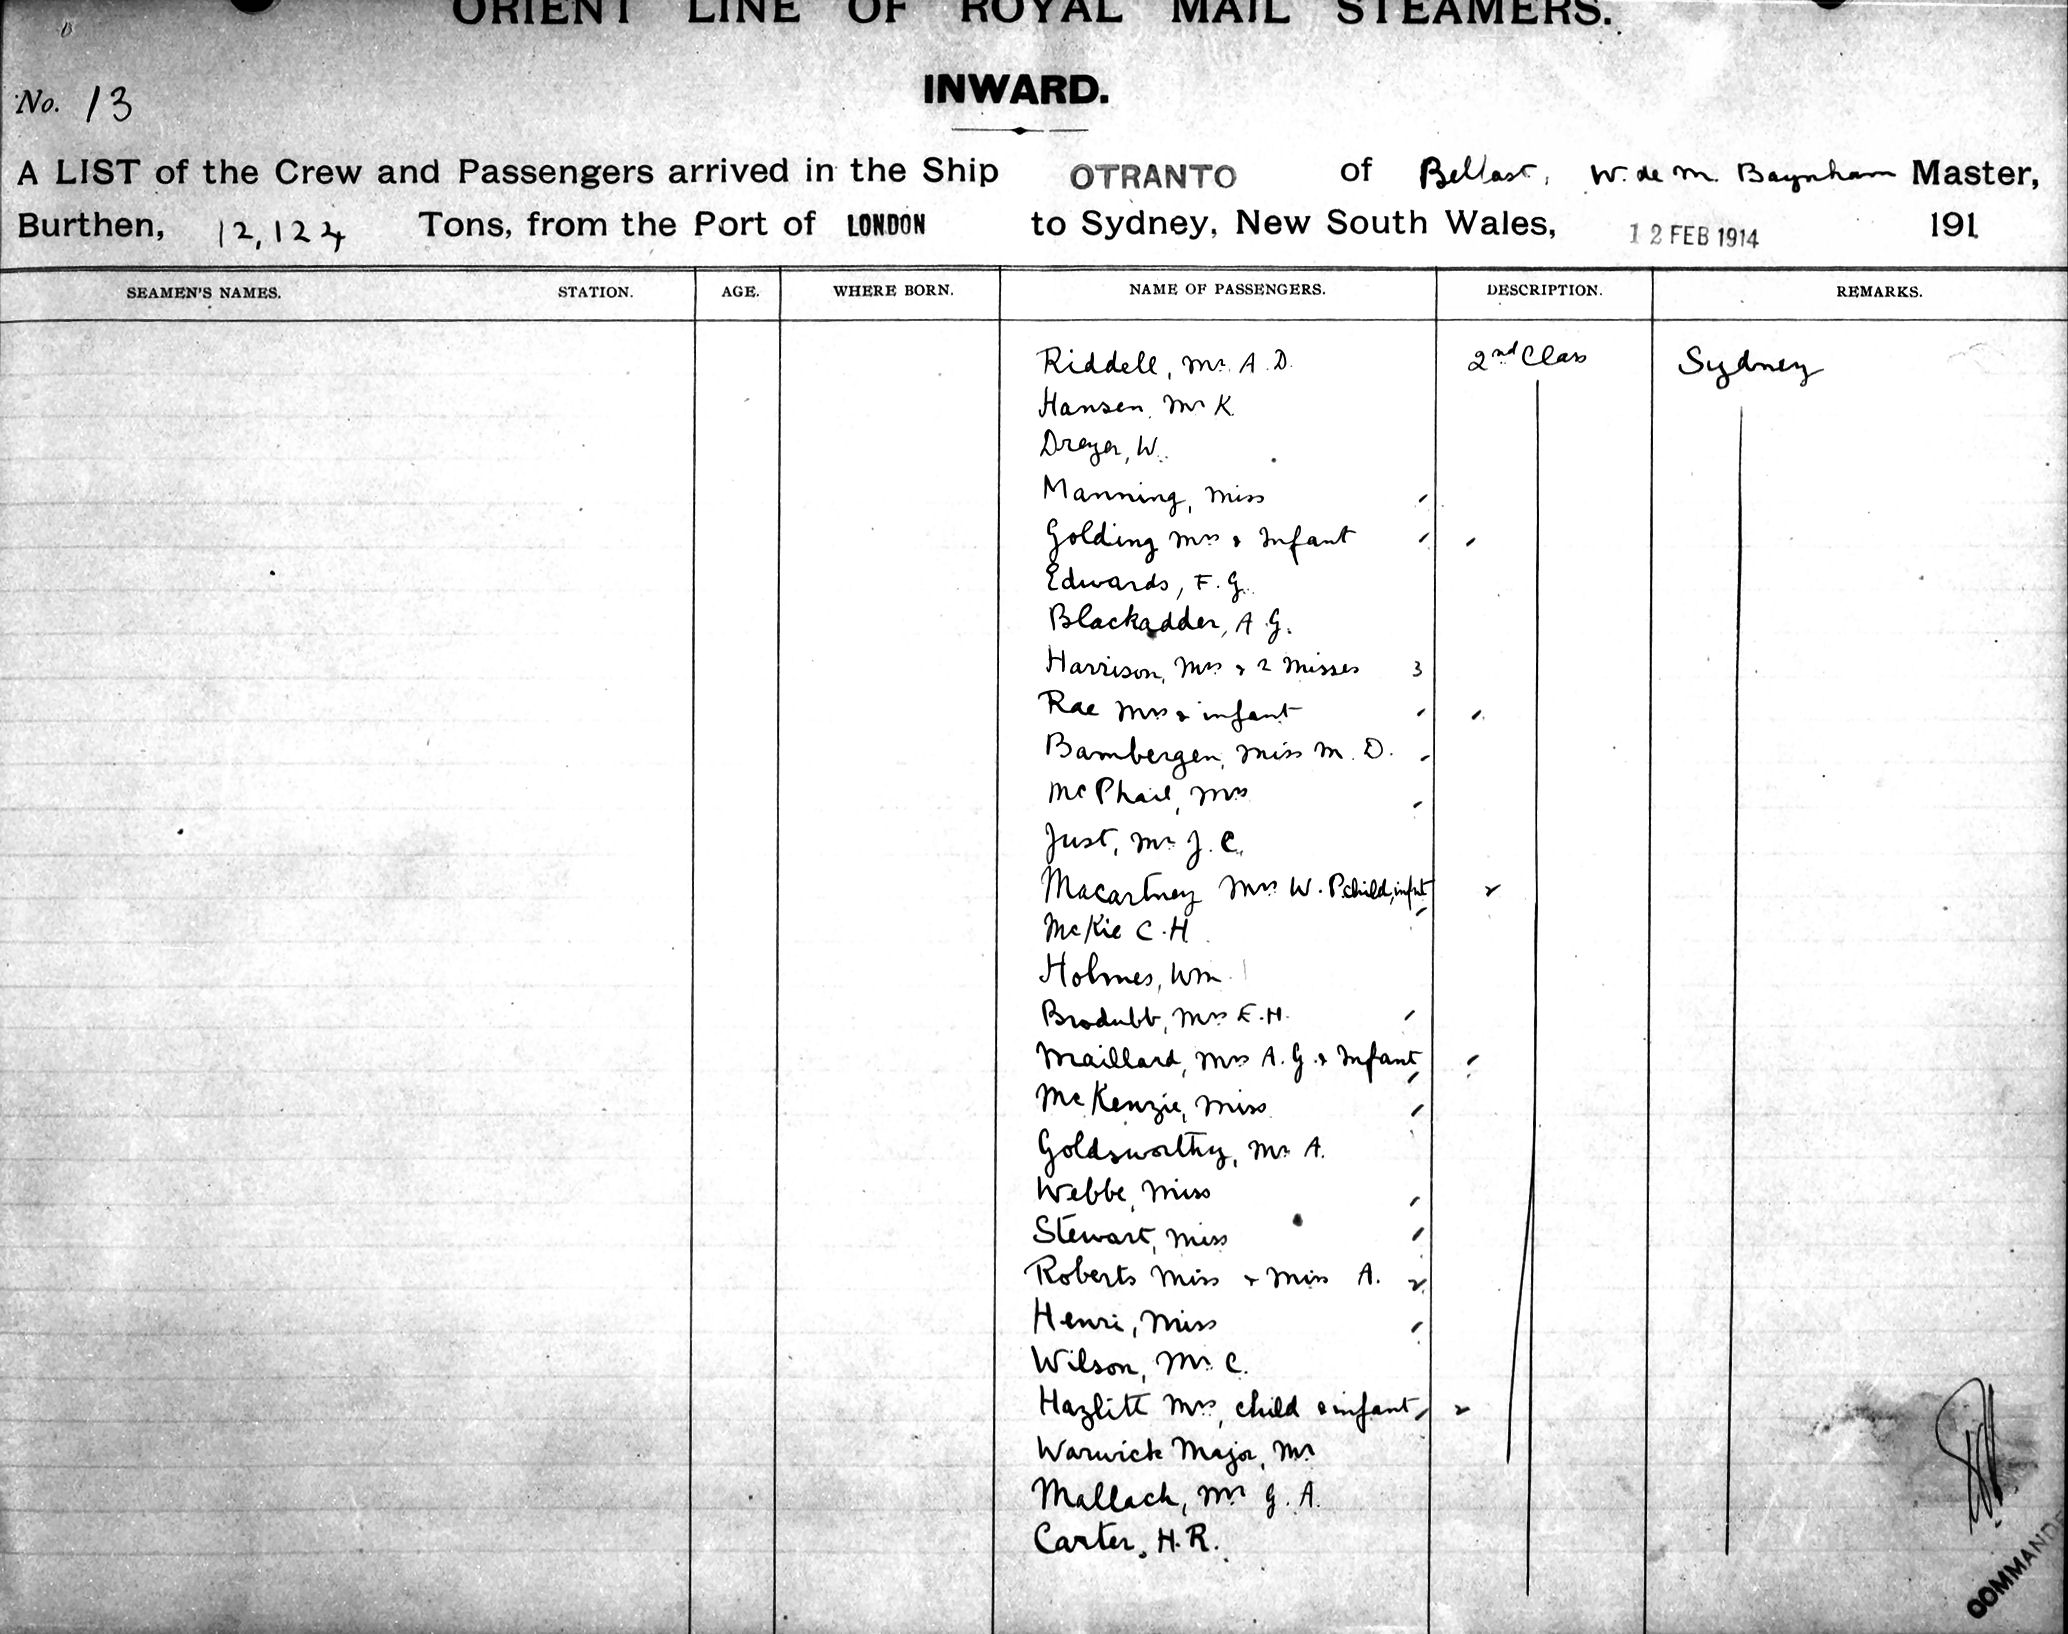 ORIENT LINE OF ROYAL MAIL STEAMERS.
INWARD.
No. 13
A LIST of the Crew and Passengers arrived in the Ship OTRANTO of Belfast, W. de M. Baynham Master,
Burthen, 12,124 Tons, from the Port of LONDON to Sydney, New South Wales, 12 FEB 1914 191
SEAMEN'S NAMES. STATION. AGE. WHERE BORN. NAME OF PASSENGERS. DESCRIPTION. REMARKS.
Riddell, Mr. A. D. 2nd Class Sydney
Hansen, Mr K
Dreyer, W.
Manning, Miss
Golding Mrs & Infant
Edwards, F. G.
Blackadder, A. G.
Harrison, Mrs & 2 Misses 3
Rae Mrs & infant
Bamberger, Miss M. D.
McPhail, Mrs
Just, Mr J. C.
Macartney Mrs W. P child, infnt
McKie C. H
Holmes, Wm
Brodubb, Mrs E. H.
Maillard, Mrs A. G. & Infant
McKenzie, Miss
Goldsworthy, Mr A.
Webbe, Miss
Stewart, Miss
Roberts Miss & Miss A. 2
Henri, Miss
Wilson, Mr. C.
Hazlitt Mrs, child & infant 2
Warwick Major, Mr
Mallach, Mr G. A.
Carter, H. R.
COMMANDE